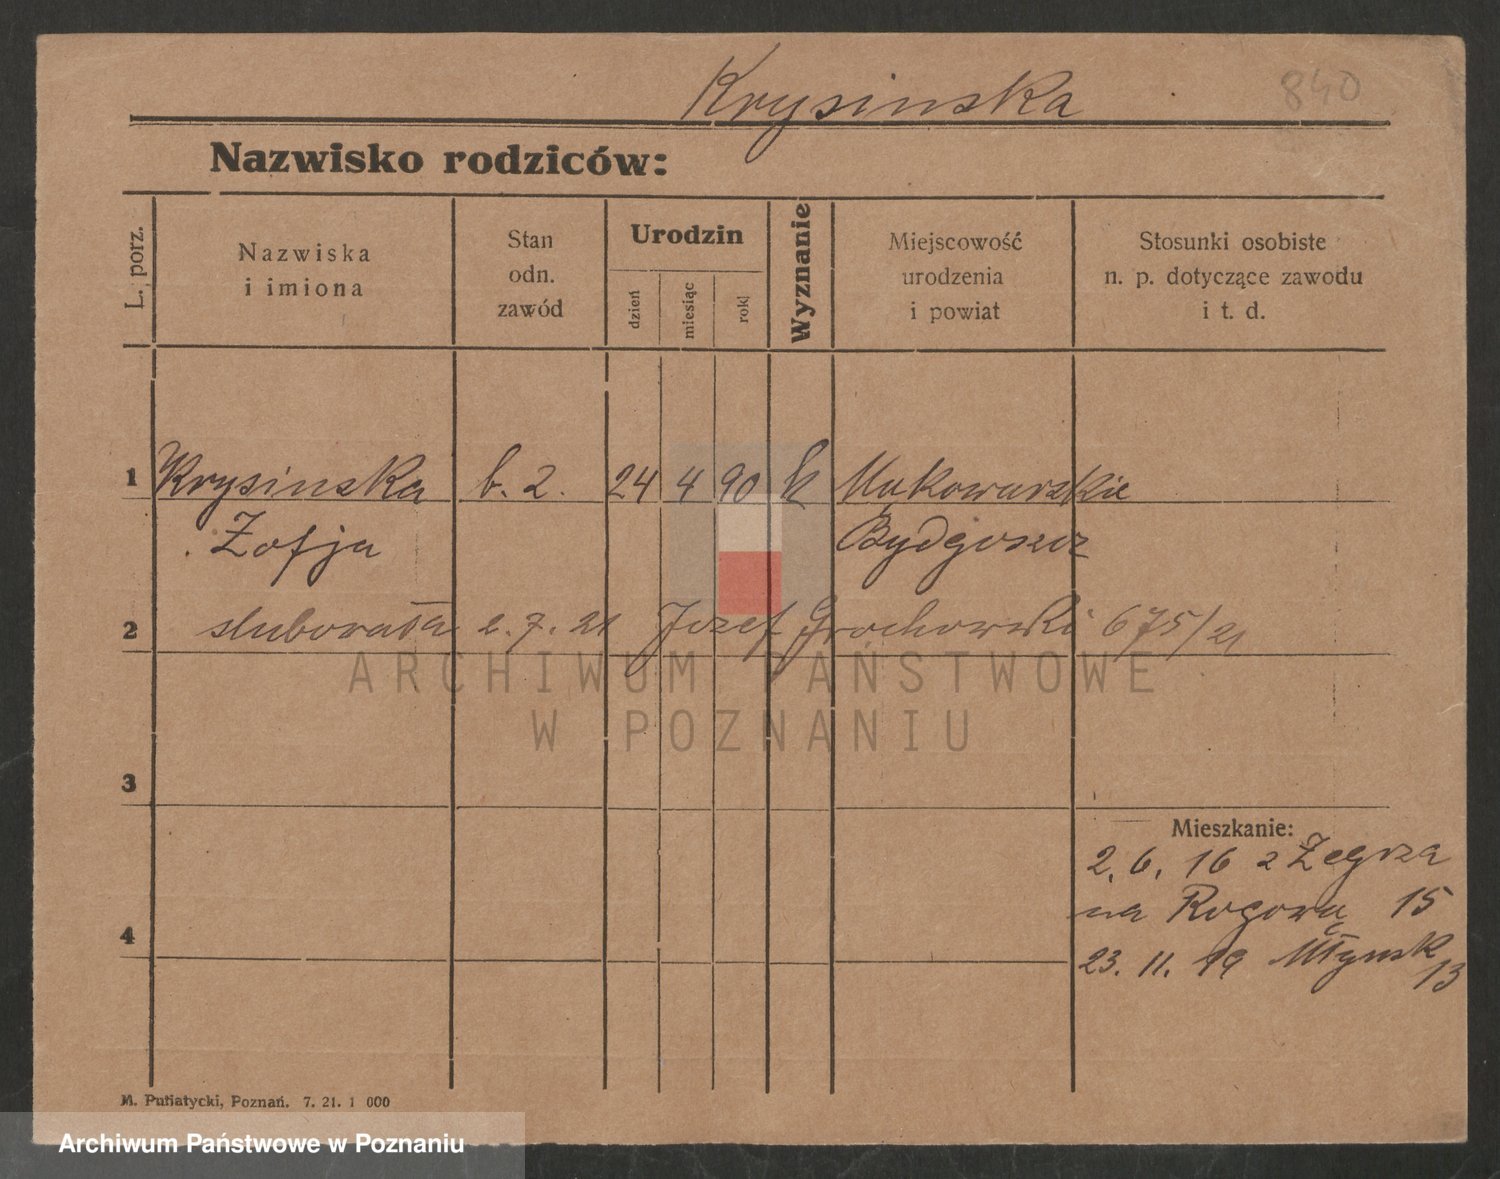 Krysinska 840
Nazwisko rodziców:
L. porz.
Nazwiska
i imiona
Stan
odn.
zawód
Urodzin
dzień
miesiąc
rok
Wyznanie
Miejscowość
urodzenia
i powiat
Stosunki osobiste
n. p. dotyczące zawodu
i t. d.
1 Krysinska b. 2. 24 4 90 k
Zofja Bydgoszcz
2 slubowała 2. 7. 21 Jozef Grochowski 675/21
ARCHIWUM PAŃSTWOWE
W POZNANIU
3
Mieszkanie:
2. 6. 16 z Żegrza
4 na 15
23. 11. 19 Młynsk
13
M. Putiatycki, Poznań. 7. 21. 1 000
Archiwum Państwowe w Poznaniu